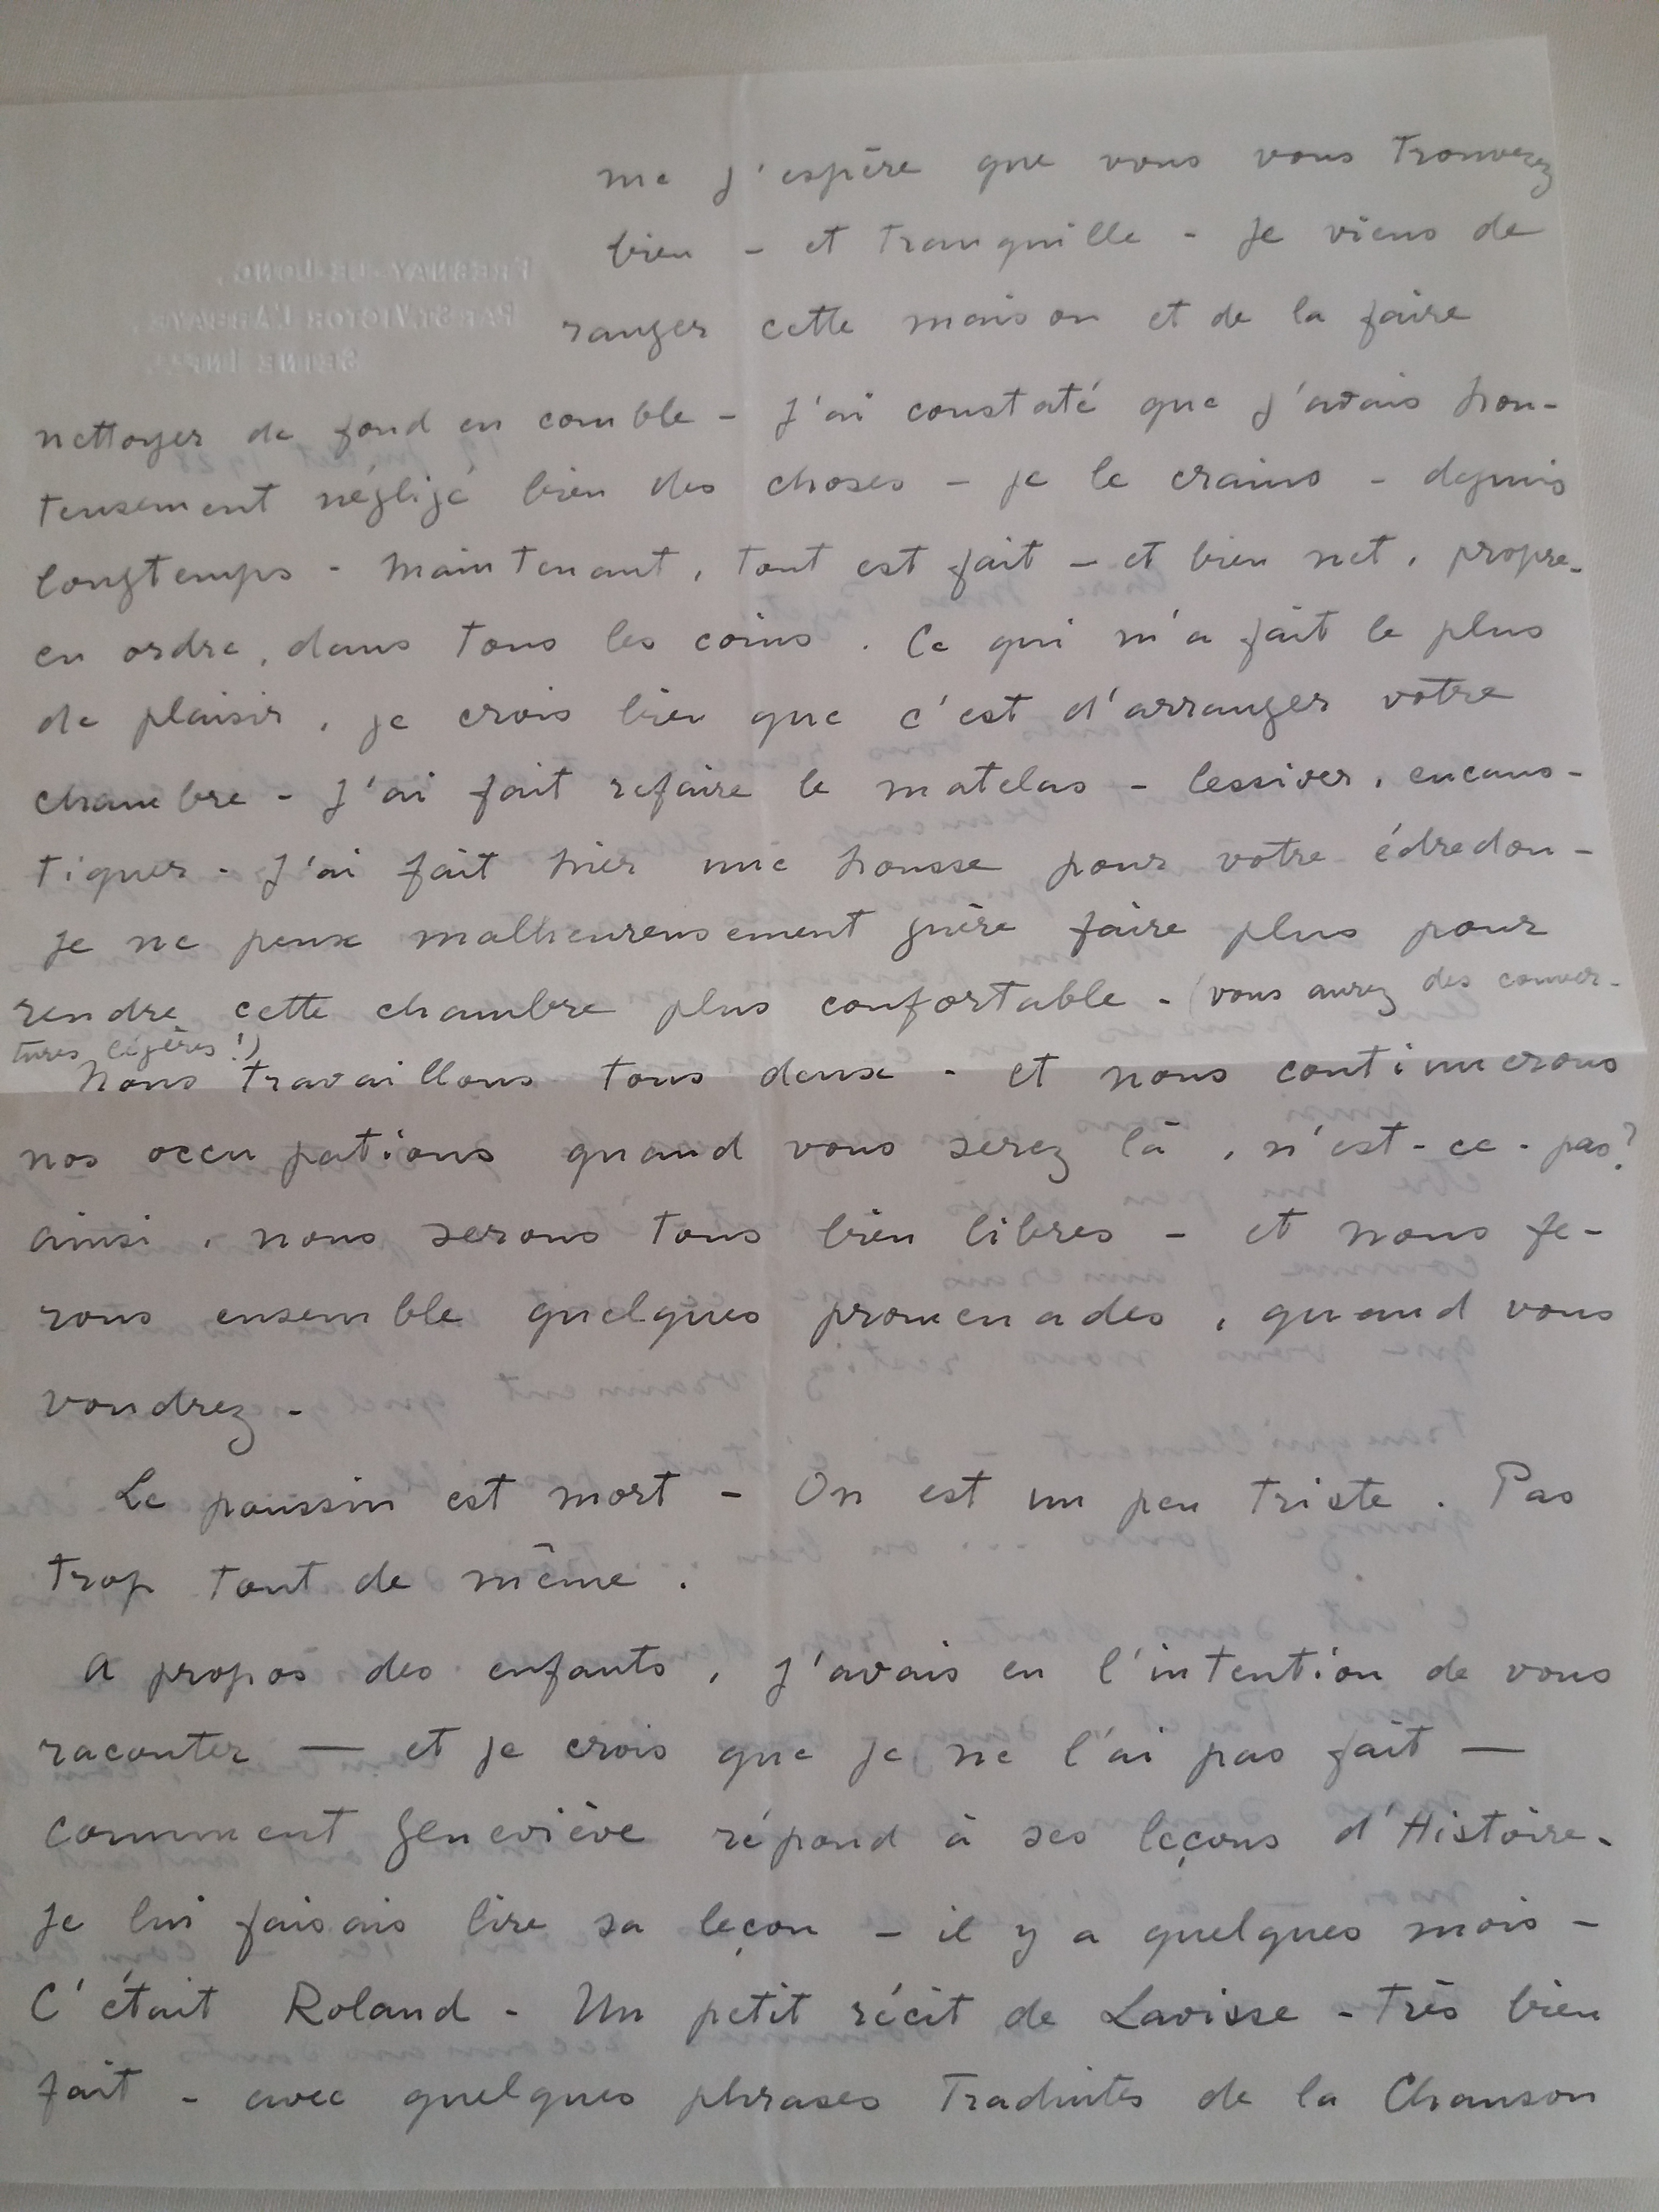 me j'espère que vous vous trouverez
bien - et tranquille - Je viens de
ranger cette maison et de la faire
FRESNAY-LE-LONG,
PAR ST. VICTOR L'ABBAYE,
SEINE INFRE.
nettoyer de fond en comble - J'ai constaté que j'avais hon-
teusement négligé bien des choses - je le crains - depuis
longtemps - Maintenant, tout est fait - et bien net, propre -
en ordre, dans tous les coins. Ce qui m'a fait le plus
de plaisir, je crois bien que c'est d'arranger votre
chambre - J'ai fait refaire le matelas - lessiver, encaus-
tiquer - J'ai fait hier une housse pour votre édredon -
Je ne peux malheureusement guère faire plus pour
rendre cette chambre plus confortable - (vous aurez des couver-
tures légères !)
Nous travaillons tous deux - et nous continuerons
nos occupations quand vous serez là, n'est-ce-pas ?
ainsi, nous serons tous bien libres - et nous fe-
rons ensemble quelques promenades, quand vous
voudrez -
Le poussin est mort - On est un peu triste. Pas
trop tout de même.
A propos des enfants, j'avais eu l'intention de vous
raconter — et je crois que je ne l'ai pas fait —
comment Geneviève répond à ses leçons d'Histoire -
Je lui faisais lire sa leçon - il y a quelques mois -
C'était Roland - Un petit récit de Lavisse - très bien
fait - avec quelques phrases traduites de la Chanson